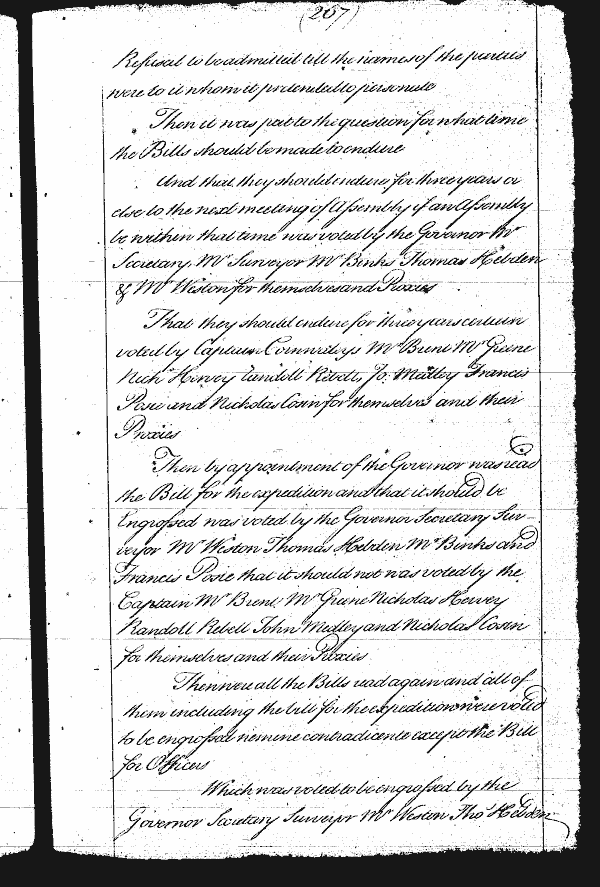 (267)
Refusal to be admitted till the names of the parties
were to it whom it pretended to personate
Then it was put to the question for what time
the Bills should be made to endure
And that they should endure for three years or
else to the next meeting of Assembly if an Assembly
be within that time was voted by the Governor Mr
Secretary Mr Surveyor Mr Binks Thomas Hebden
& Mr Weston for themselves and Proxies
That they should endure for three years certein
voted by Captain Cornwaleys Mr Brent Mr Greene
Nich Hervey Randoll Revell, Jo: Medley Francis
Posie and Nicholas Cosin for themselves and their
Proxies
Then by appointment of the Governor was read
the Bill for the expedition and that it should be
Engrossed was voted by the Governor Secretary Sur-
veyor Mr Weston Thomas Hebden Mr Binks and
Francis Posie that it should not was voted by the
Captain Mr Brent, Mr Greene Nicholas Hervey
Randoll Rebell John Medley and Nicholas Cosin
for themselves and their Proxies
Then were all the Bills read again and all of
them including the bill for the expedition were voted
to be engrossed nemine contradicente except the Bill
for Officers
Which was voted to be engrossed by the
Governor Secretary Surveyor Mr Weston Tho Hebden